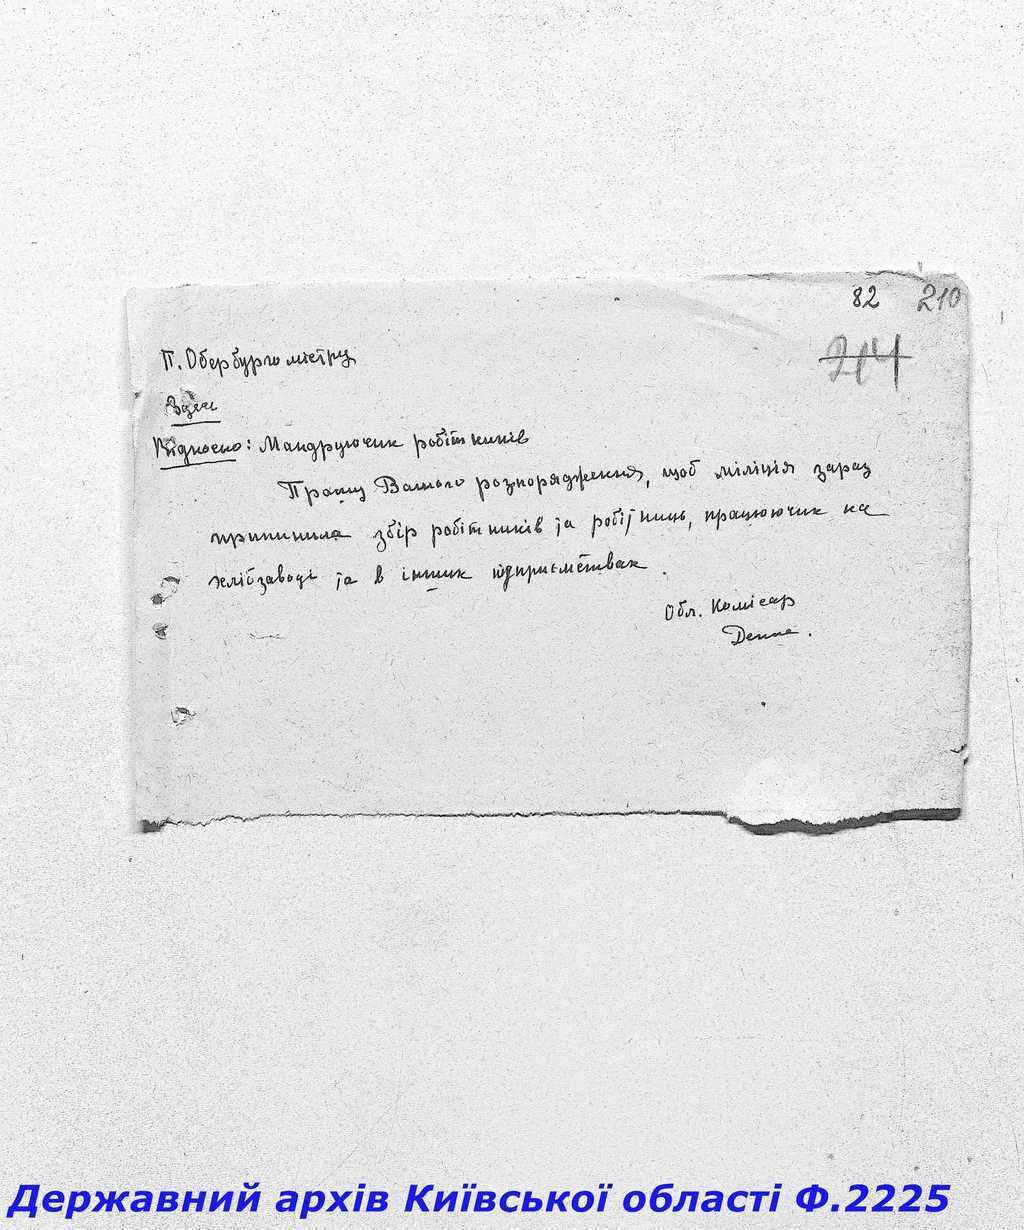 82 210
214
П. Обербургомістру
Здесь
Відносно: Мандруючих робітників
Прошу Вашого розпорядження, щоб міліція зараз
припинила збір робітників та робітниць, працюючих на
хлібзаводі та в інших підприємствах.
Обл. Комісар
Державний архів Київської області Ф.2225